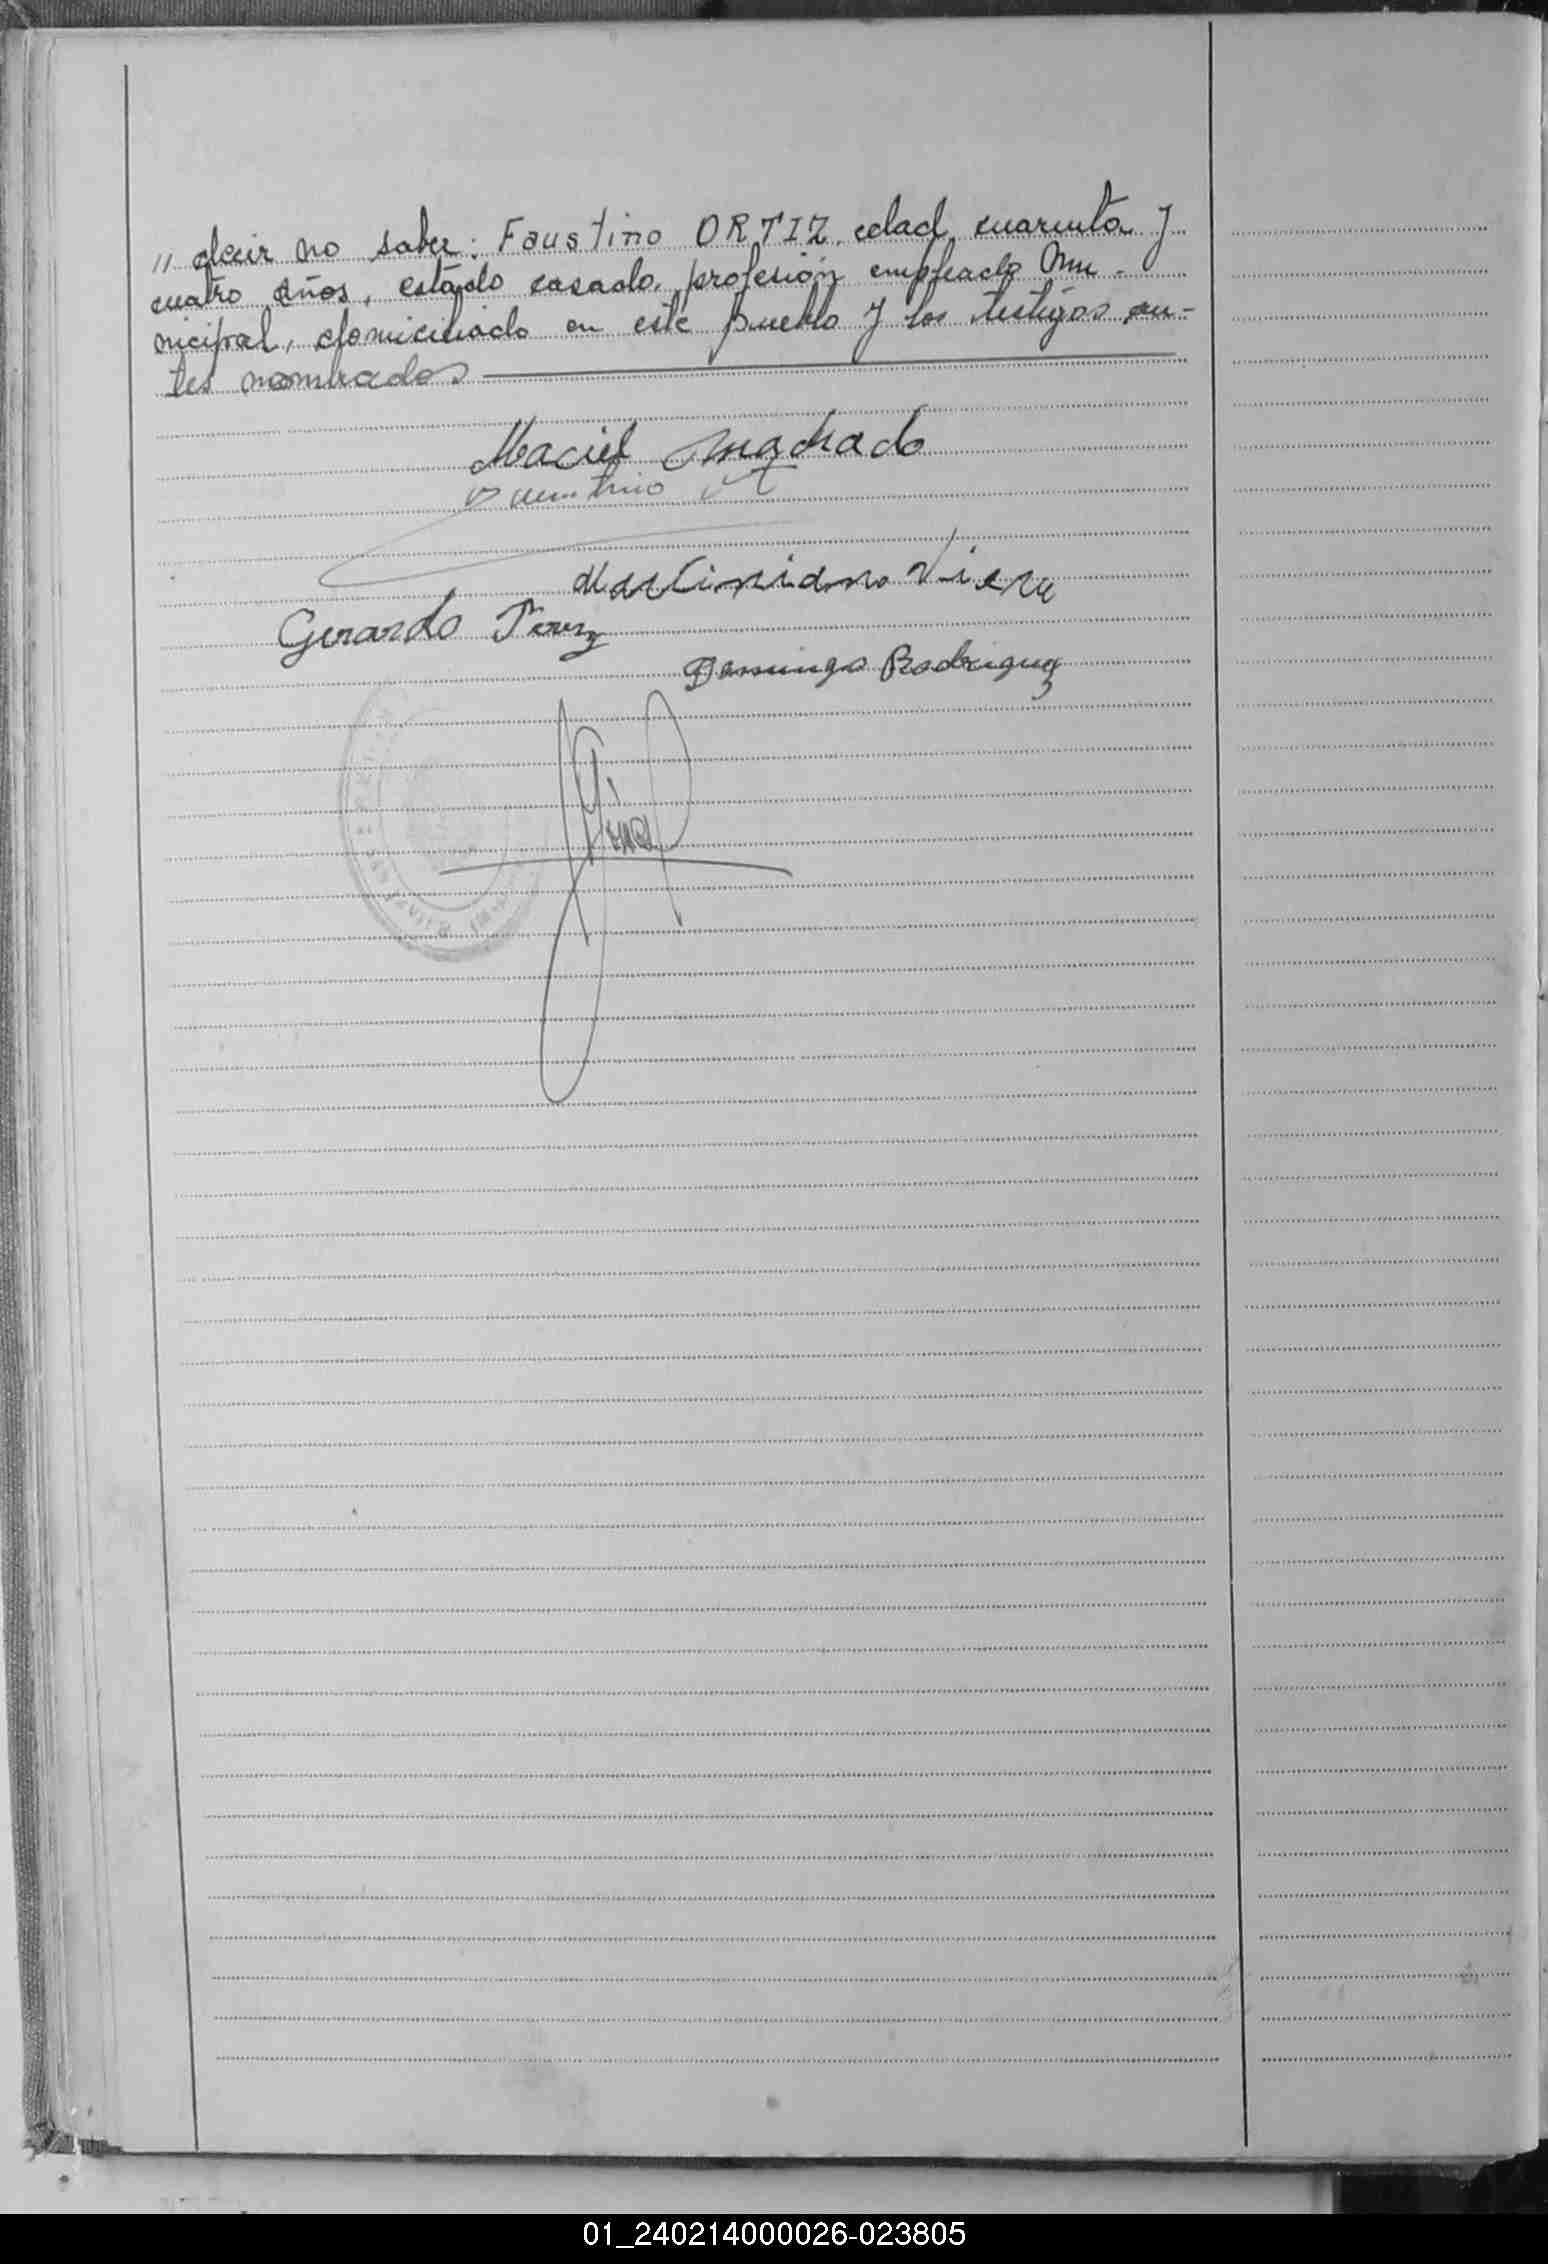 " decir no saber: Faustino ORTIZ, edad cuarenta y
cuatro años, estado casado, profesión empleado Mu-
nicipal, domiciliado en este pueblo y los testigos an-
tes nombrados
Maciel Machado
Maximiano Viera
Gerardo Perez
Domingo Rodriguez
01_240214000026-023805